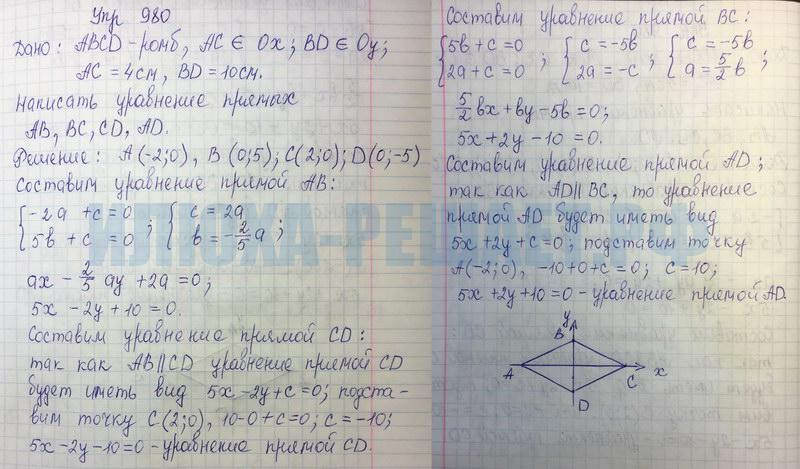 Упр 980
Дано: ABCD - ромб, AC ∈ Ox; BD ∈ Oy;
AC = 4см, BD = 10см.
Написать уравнение прямых
AB, BC, CD, AD.
Решение: A(-2;0), B(0;5); C(2;0); D(0;-5)
Составим уравнение прямой AB:
{-2a + c = 0; {c = 2a
{5b + c = 0 {b = -2/5 a;
ax - 2/5 ay + 2a = 0;
5x - 2y + 10 = 0.
Составим уравнение прямой CD:
так как AB∥CD уравнение прямой CD
будет иметь вид 5x - 2y + c = 0; подста-
вим точку C(2;0), 10-0+c=0; c=-10;
5x - 2y - 10 = 0 - уравнение прямой CD.
Составим уравнение прямой BC:
{5b + c = 0; {c = -5b; {c = -5b
{2a + c = 0 {2a = -c {a = 5/2 b;
5/2 bx + by - 5b = 0;
5x + 2y - 10 = 0.
Составим уравнение прямой AD;
так как AD∥BC, то уравнение
прямой AD будет иметь вид
5x + 2y + c = 0; подставим точку
A(-2;0), -10+0+c=0; c=10;
5x + 2y + 10 = 0 - уравнение прямой AD.
y
B
A
C
x
D
ИЛЮХА-РЕШАЕТ.РФ